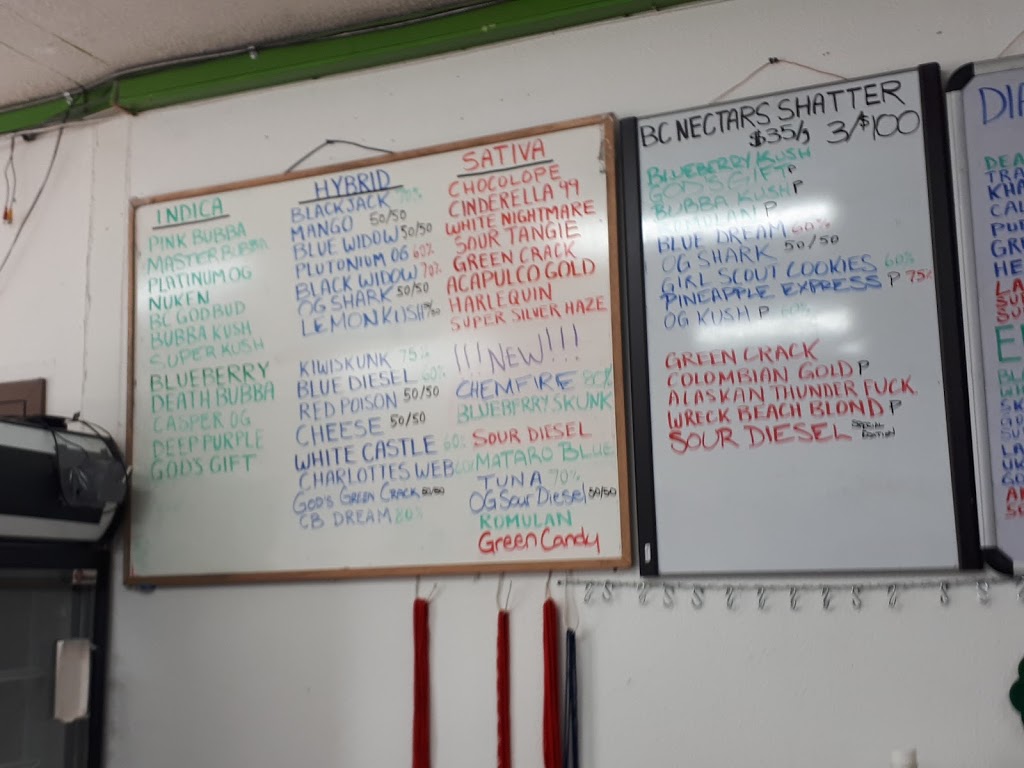 INDICA
PINK BUBBA
MASTER BUBBA
PLATINUM OG
NUKEN
BC GOD BUD
BUBBA KUSH
SUPER KUSH
BLUEBERRY
DEATH BUBBA
CASPER OG
DEEP PURPLE
GOD'S GIFT
HYBRID
BLACKJACK 70%
MANGO 50/50
BLUE WIDOW 50/50
PLUTONIUM OG 60%
BLACK WIDOW 70%
OG SHARK 50/50
LEMON KUSH
KIWISKUNK 75%
BLUE DIESEL 60%
RED POISON 50/50
CHEESE 50/50
WHITE CASTLE 60%
CHARLOTTES WEB
GOD'S GREEN CRACK 50/50
CB DREAM 80%
SATIVA
CHOCOLOPE
CINDERELLA '99
WHITE NIGHTMARE
SOUR TANGIE
GREEN CRACK
ACAPULCO GOLD
HARLEQUIN
SUPER SILVER HAZE
!!!NEW!!!
CHEMFIRE 80%
BLUEBERRY SKUNK
SOUR DIESEL
MATARO BLUE
TUNA 70%
OG Sour Diesel 50/50
ROMULAN
Green Candy
BC NECTARS SHATTER
$35/g 3/$100
BLUEBERRY KUSH
GOD'S GIFT P
BUBBA KUSH P
ROMULAN P
BLUE DREAM 60%
OG SHARK 50/50
GIRL SCOUT COOKIES 60%
PINEAPPLE EXPRESS P 75%
OG KUSH P 60%
GREEN CRACK
COLOMBIAN GOLD P
ALASKAN THUNDER FUCK
WRECK BEACH BLOND P
SOUR DIESEL SPECIAL EDITION
DIA
DEA
TRA
KHA
CAL
PUR
GRE
HE
LA
SU